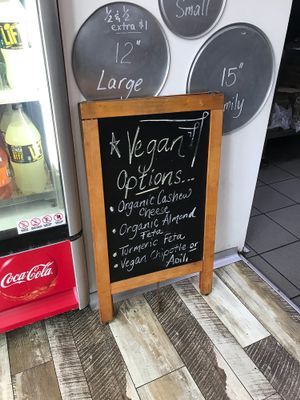 ½ & ½
extra $1
12"
Large
Small
15"
Family
* Vegan
Options...
• Organic Cashew
Cheese
• Organic Almond
Feta
• Turmeric Feta
• Vegan Chipotle or
Aoili
Coca-Cola